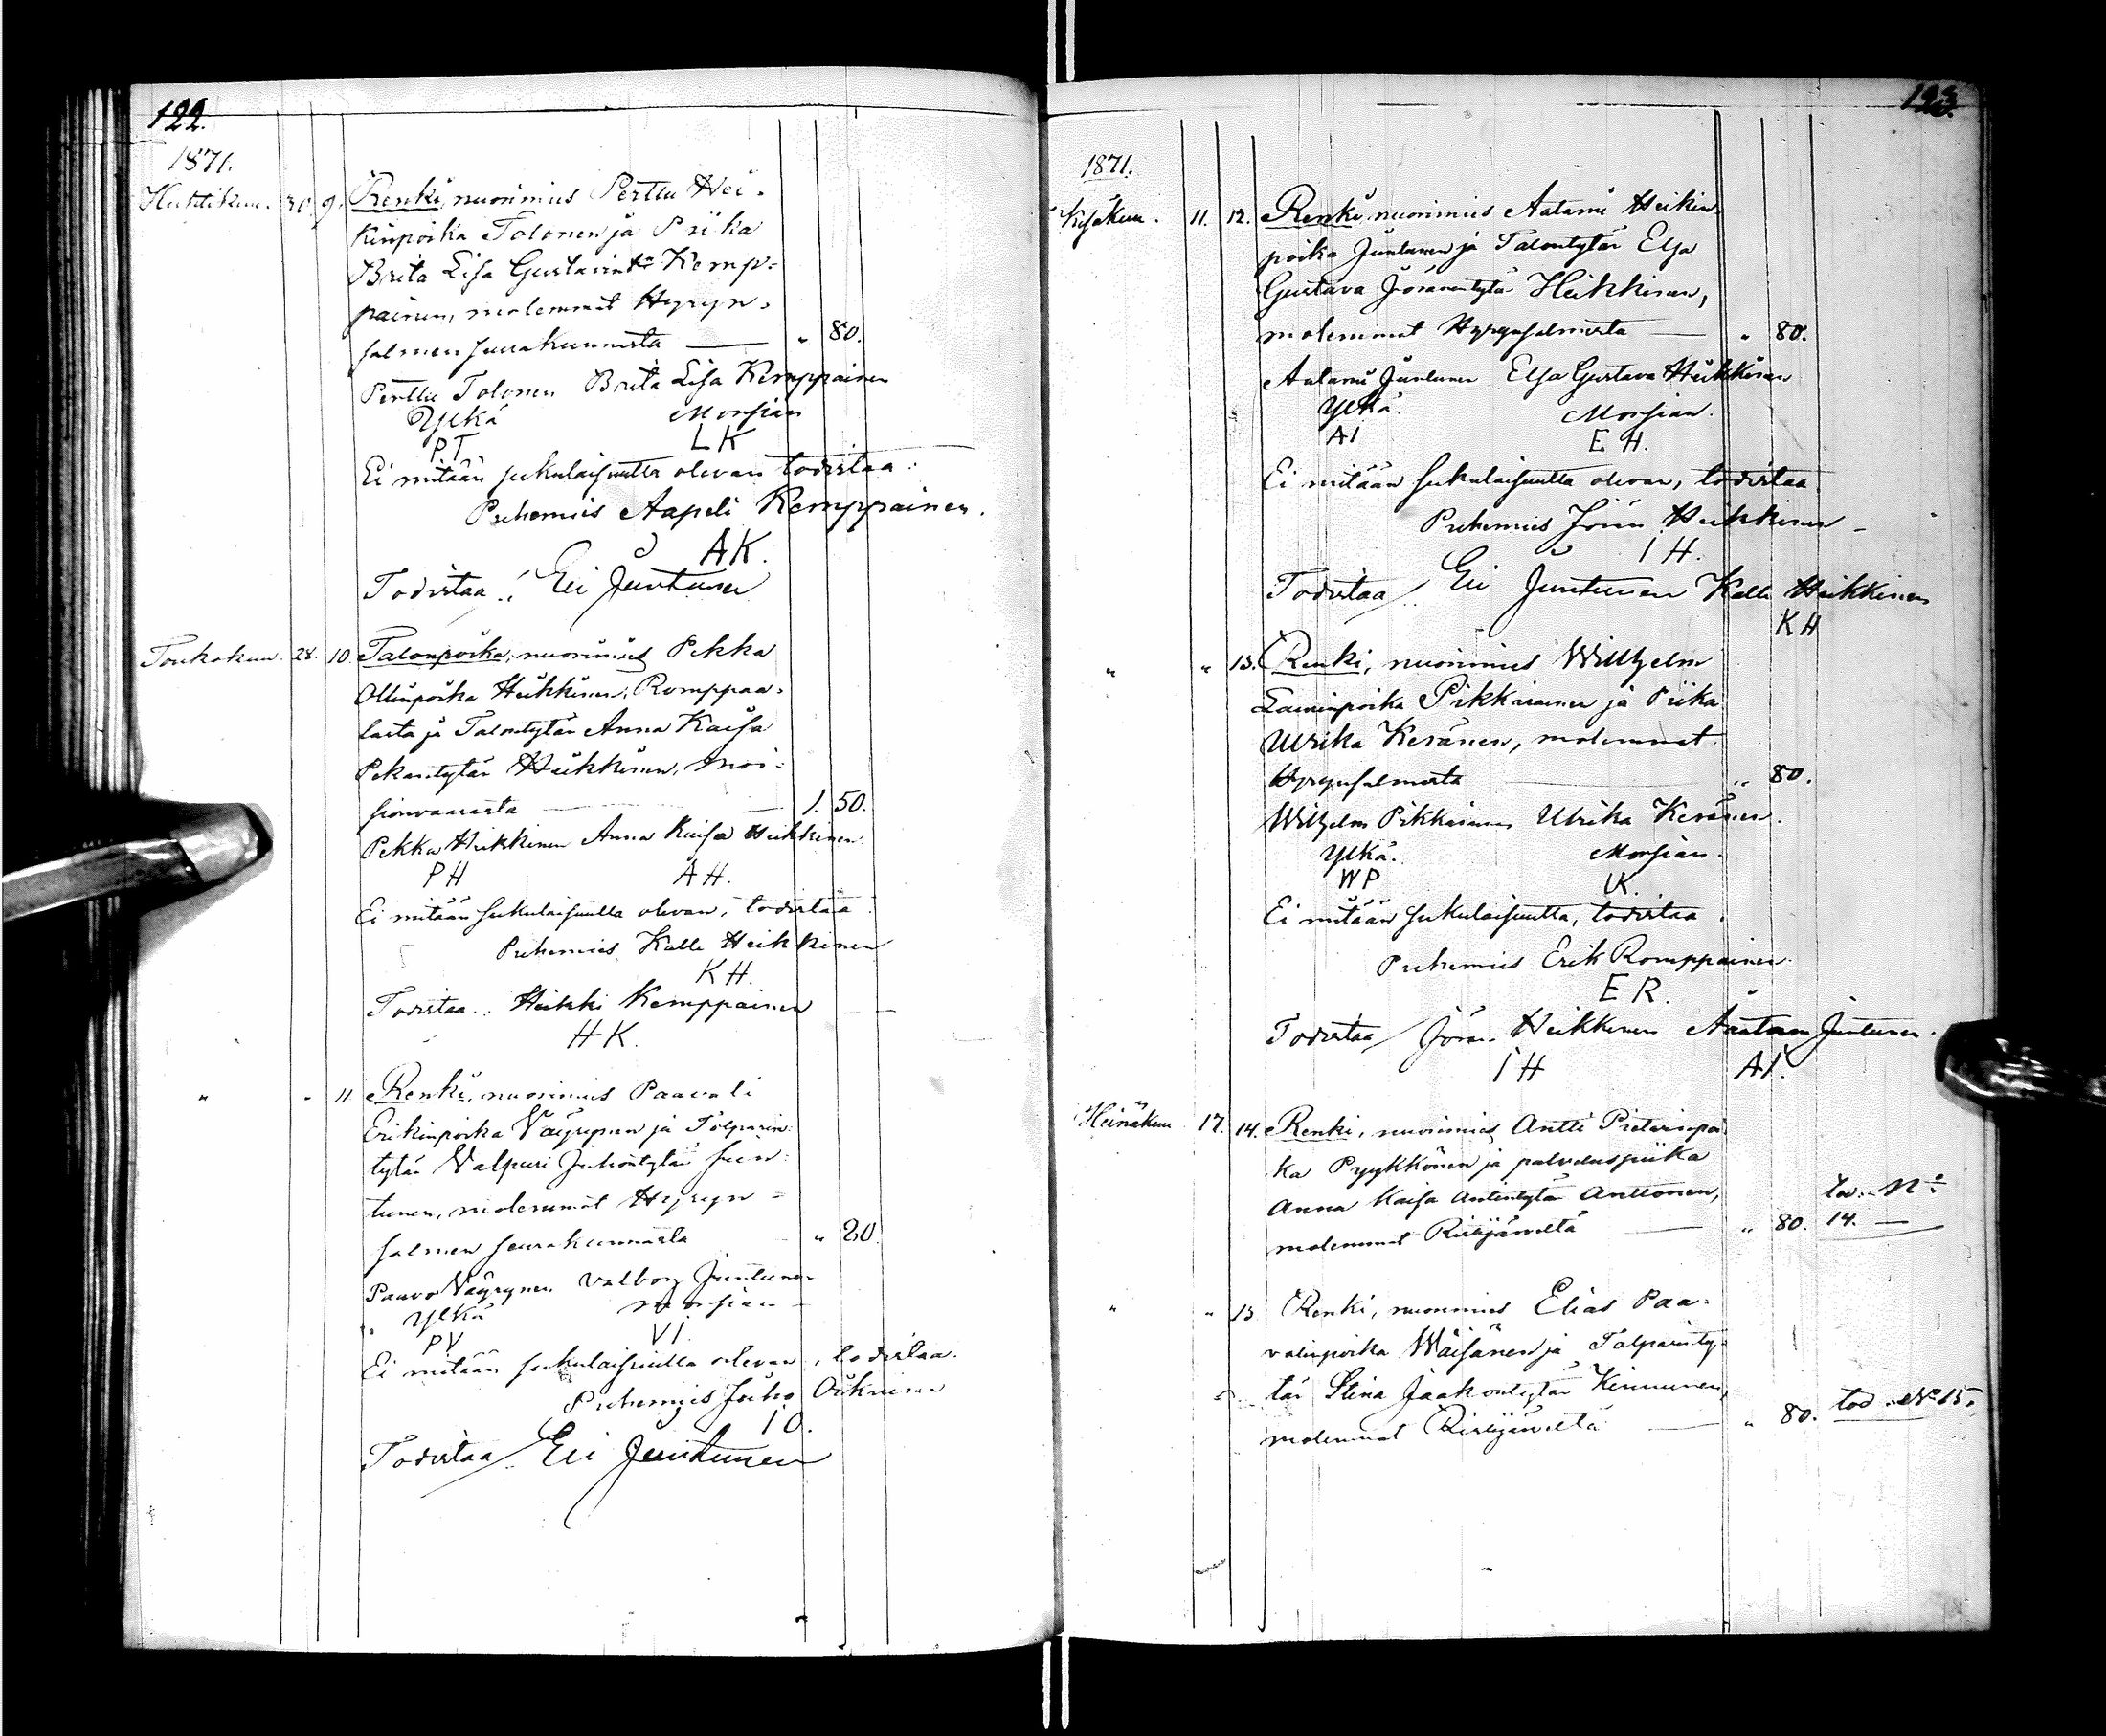 122.
1871.
Huhtikuu. 30. 9. Renki, nuorimies Perttu Hei-
kinpoika Tolonen ja Piika
Brita Lisa Gustavintr Kemp-
painen, molemmat Hyryn-
salmen seurakunnasta — " 80.
Perttu Tolonen Brita Lisa Kemppainen
Ylkä Morsian
PT LK
Ei mitään sukulaisuutta olevan todistaa:
Puhemies Aapeli Kemppainen.
AK.
Todistaa: Eli Juntunen
Toukokuu. 28. 10. Talonpoika, nuorimies Pekka
Ollinpoika Heikkinen, Romppaa-
lasta ja Talontytär Anna Kaisa
Pekantytär Heikkinen, Moi-
sionvaarasta — 1. 50.
Pekka Heikkinen Anna Kaisa Heikkinen
PH AH.
Ei mitään sukulaisuutta olevan, todistaa:
Puhemies Kalle Heikkinen
KH.
Todistaa: Heikki Kemppainen
HK.
" " 11 Renki, nuorimies Paavali
Erikinpoika Väyrynen ja Tolparin-
tytär Valpuri Juhontytär Jun-
tunen, molemmat Hyryn-
salmen seurakunnasta " 80
Paavo Väyrynen Valborg Juntunen
Ylkä morsian
PV VI.
Ei mitään sukulaisuutta olevan, todistaa.
Puhemies Juho Oikarinen
IO.
Todistaa Eli Juntunen
123.
1871.
Kesäkuu. 11. 12. Renki, nuorimies Aatami Heikin-
poika Juntunen ja Talontytär Elsa
Gustava Jöranintytär Heikkinen,
molemmat Hyrynsalmesta — " 80.
Aatami Juntunen Elsa Gustava Heikkinen
Ylkä. Morsian.
AI EH.
Ei mitään sukulaisuutta olevan, todistaa
Puhemies Heikkinen
IH.
Todistaa: Eli Juntunen Kalle Heikkinen
KH
" " 13. Renki, nuorimies Wilhelm
Laurinpoika Pikkarainen ja Piika
Ulrika Keränen, molemmat
Hyrynsalmesta " 80.
Wilhelm Pikkarainen Ulrika Keränen.
Ylkä. Morsian.
WP UK.
Ei mitään sukulaisuutta, todistaa:
Puhemies Erik Romppainen
ER.
Todistaa Jöran Heikkinen Aatam Juntunen.
IH AI.
Heinäkuu 17. 14. Renki, nuorimies Antti Pietarinpoi
ka Pyykkönen ja palveluspiika
Anna Kaisa Antintytär Anttonen,
molemmat Ristijärveltä " 80. tod. No
14. —
" " 15 Renki, nuorimies Elias Paa-
valinpoika Wäisänen ja Tolparinty-
tär Stina Jaakontytär Kinnunen,
molemmat Ristijärveltä " 80. tod. No 15.